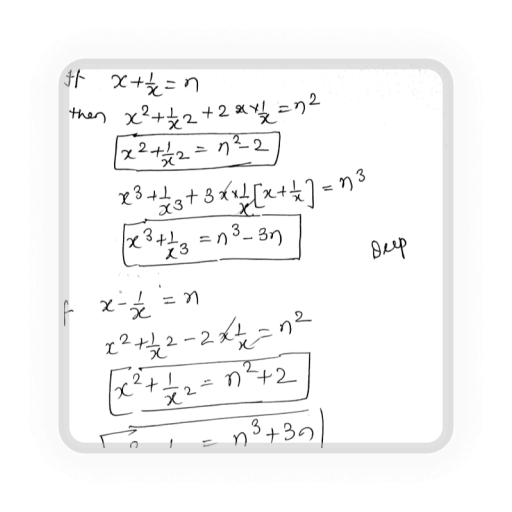 If x+1/x=n
then x²+1/x²+2×x×1/x=n²
x²+1/x²=n²-2
x³+1/x³+3×x×1/x[x+1/x]=n³
x³+1/x³=n³-3n
Deep
f x-1/x=n
x²+1/x²-2×1/x=n²
x²+1/x²=n²+2
= n³+3n